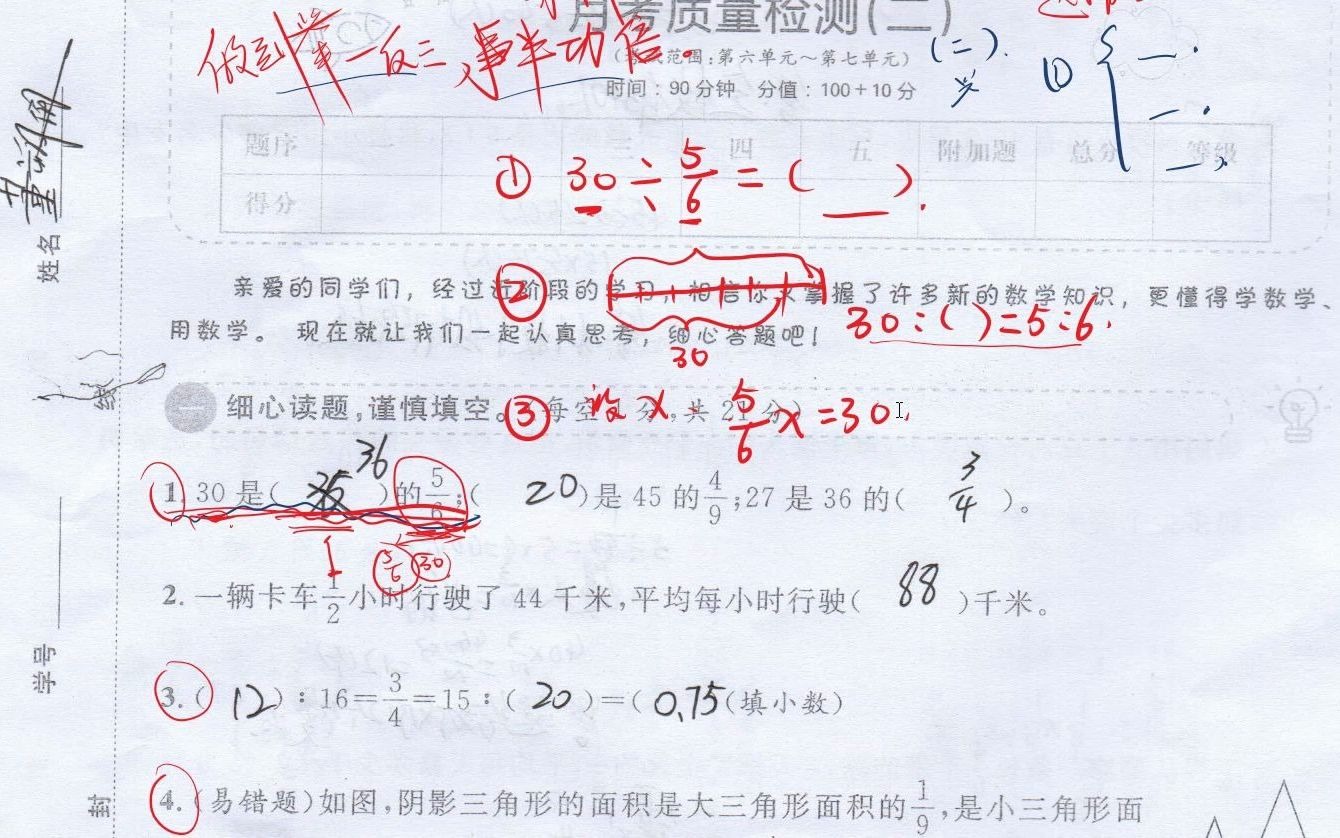 月考质量检测(二)
做到举一反三,事半功倍.
范围:第六单元～第七单元)
(二).
①
一.
二.
时间:90分钟 分值:100+10分
题序 一 三 四 五 附加题 总分 等级
得分
① 30÷5/6=( ).
姓名
亲爱的同学们,经过近阶段的学习,相信你又掌握了许多新的数学知识,更懂得学数学、
②
用数学。现在就让我们一起认真思考,细心答题吧!
30:( )=5:6.
30
线
一 细心读题,谨慎填空。(每空1分,共21分)
③ 设x. 5/6x=30.
1. 30是( 36 )的5/6;( 20 )是45的4/9;27是36的( 3/4 )。
1 5/6 30
2. 一辆卡车1/2小时行驶了44千米,平均每小时行驶( 88 )千米。
学号
3. ( 12 ):16=3/4=15:( 20 )=( 0.75(填小数)
封
4. (易错题)如图,阴影三角形的面积是大三角形面积的1/9,是小三角形面